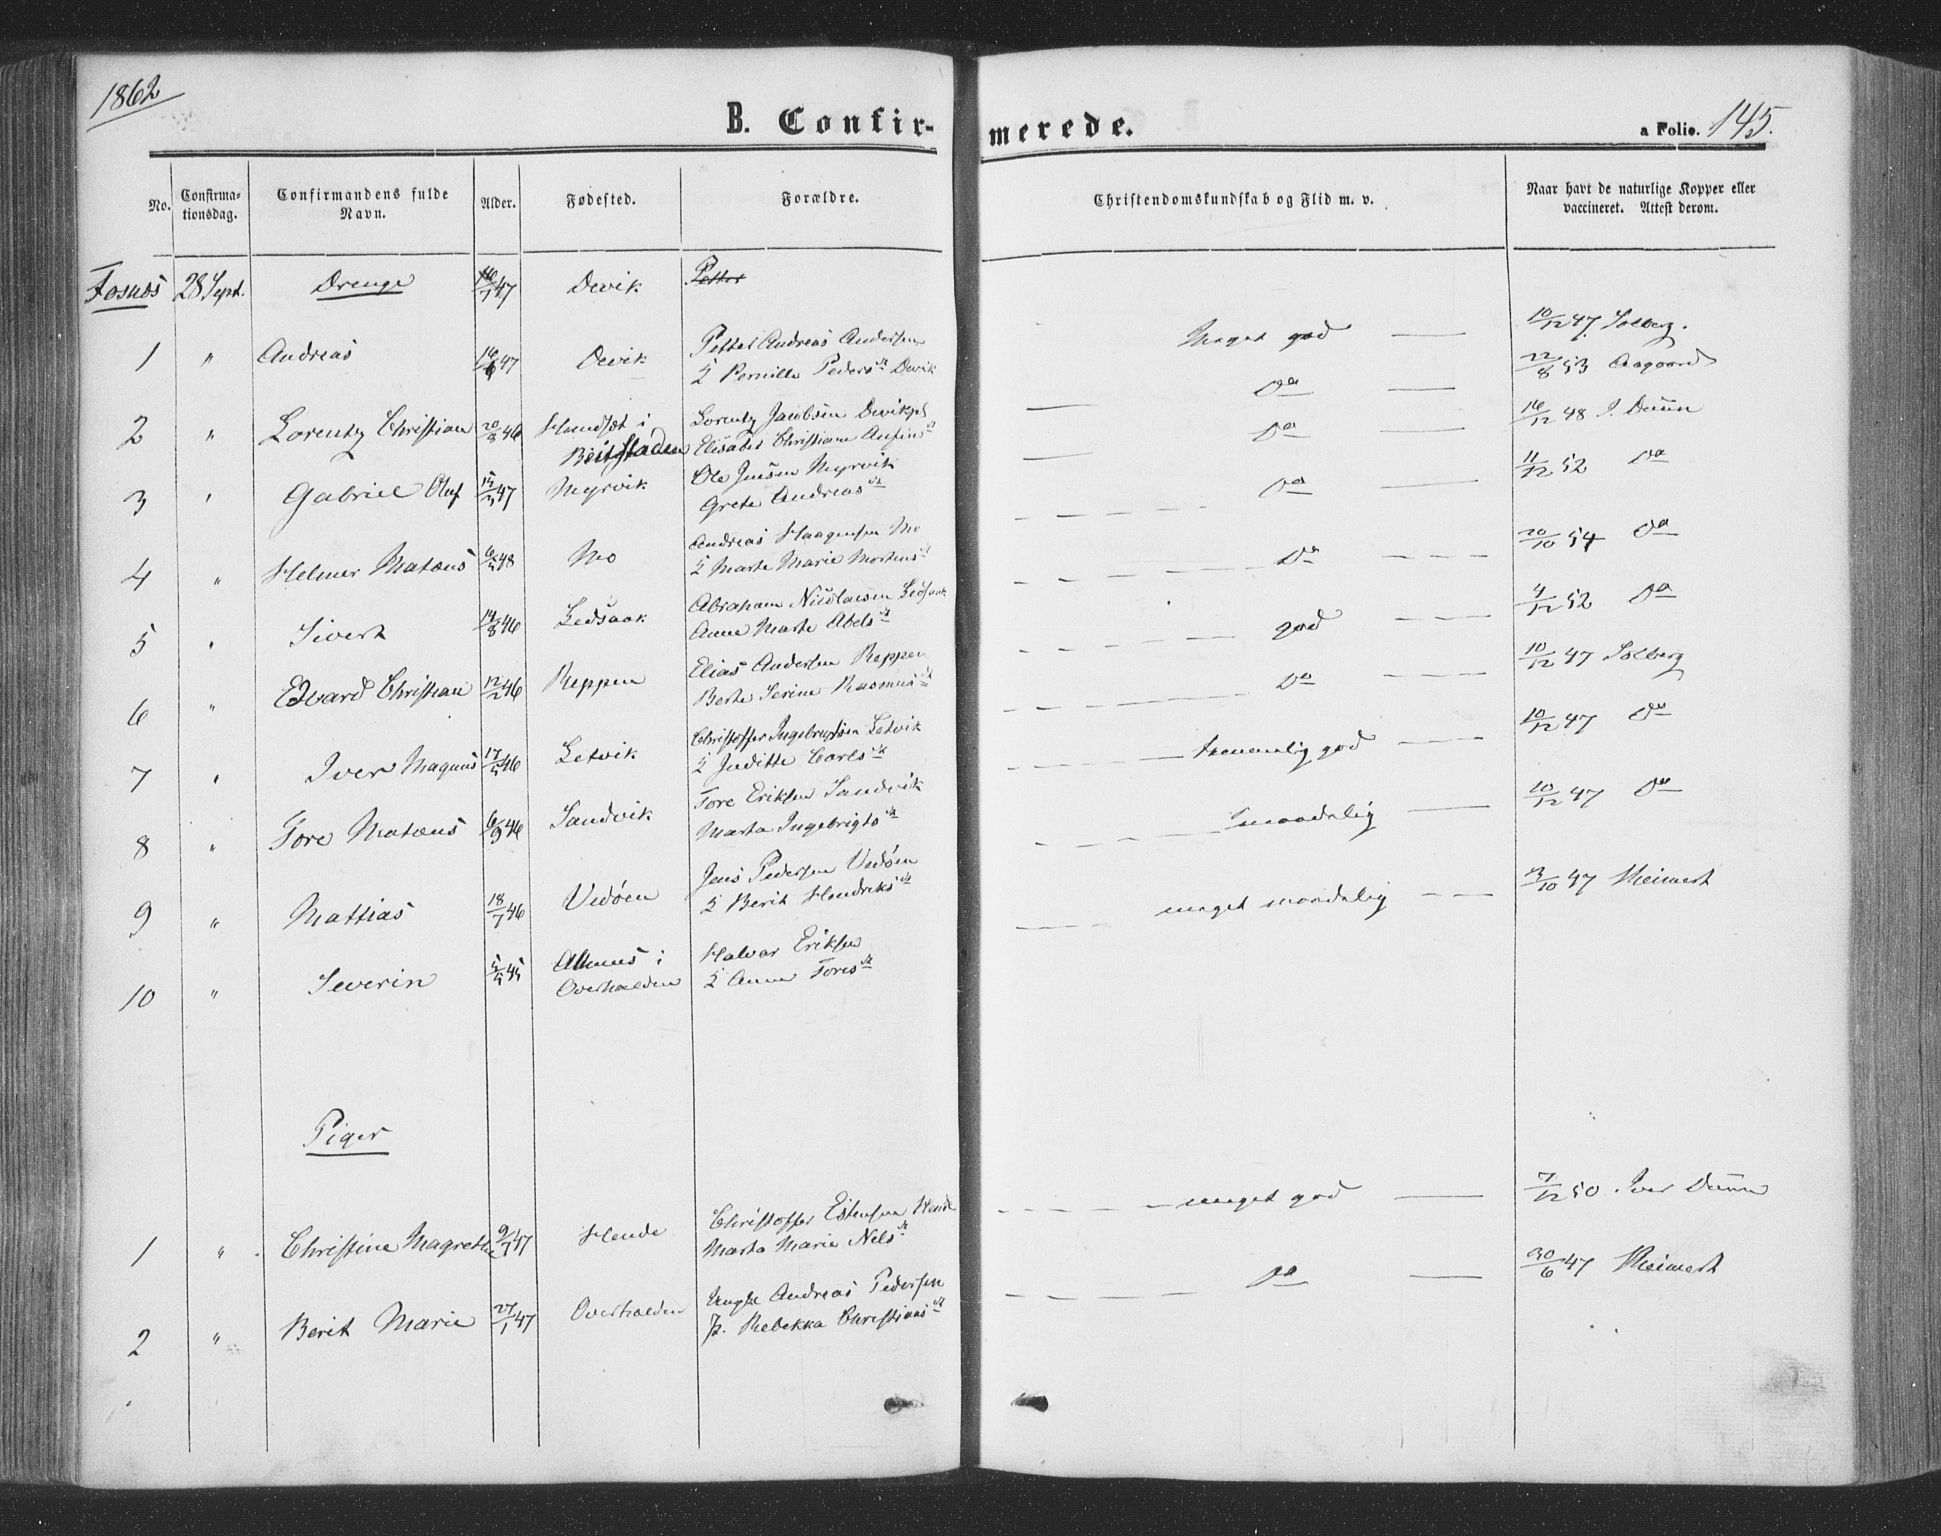 1862
B. Confir-
merede.
a Folio. 145.
No.
Confirma-
tionsdag.
Confirmandens fulde
Navn.
Alder.
Fødested.
Forældre.
Christendomskundskab og Flid m. v.
Naar havt de naturlige Kopper eller
vaccineret. Attest derom.
Fosnæs 28 Sept. Drenge 16/7 47 Devik Petter
1 " Andreas 47 Devik Petter Andreas Andersen
& Pernille Peders Devik
Meget god 10/12 47 Solberg.
2 " Lorentz Christian 20/8 46 i
Beitstaden
Lorentz Jacobsen
Elisabet Christiane
Do 22/8 53 Aagaard
3 " Gabriel Oluf 47 Myrvik Ole Jensen Myrvik
Grete Andreas
Do 16/12 48 I. Duun
4 " Helmer Matæus 48 Mo Andreas Haagensen Mo
& Marte Marie Mortens
Do 11/12 52 Do
5 " Sivert 14/8 46 Ledsaak Abraham Nicolaisen Ledsaak
Anne Marte Abels
Do 20/10 54 Do
6 " Edvard Christian 12/2 46 Reppen Elias Andersen Reppen
Berte Serine Rasmus
god 4/12 52 Do
7 " Iver Magnus 17/5 46 Letvik Christoffer Ingebrigtsen Letvik
& Juditte Carls
Do 10/12 47 Solberg
8 " Tore Matæus 6/9 46 Sandvik Tore Eriksen Sandvik
Marta Ingebrigts
temmelig god 10/12 47 Do
9 " Mattias 18/7 46 Vedøen Jens Pedersen Vedøen
& Berit Hendriks
maadelig 10/12 47 Do
10 " Severin 45 i
Overhalden
Halvor Eriksen
& Anne Tores
meget maadelig 3/10 47
Piger
1 " Christine Magrethe 9/7 47 Hende Christoffer Estensen Hende
Marta Marie Nels
meget god 7/12 50 Iver Duun
2 " Berit Marie 27/1 47 Overhalden Ungk. Andreas Pedersen
P. Rebekka Christians
Do 30/6 47